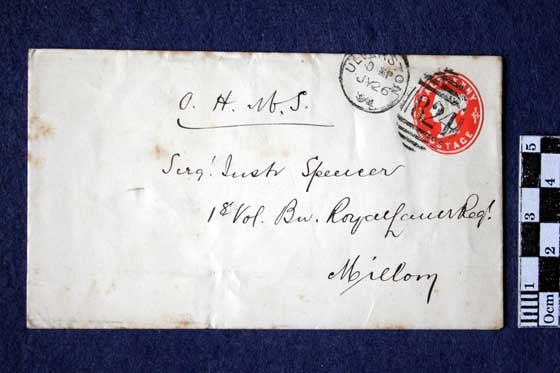 O. H. M. S.
Sergt. Instr Spencer
1st Vol. Bn. Royal Lanc Regt.
Millom
ULVERSTON
JY 26
824
PENNY
POSTAGE
5
4
3
2
1
0cm